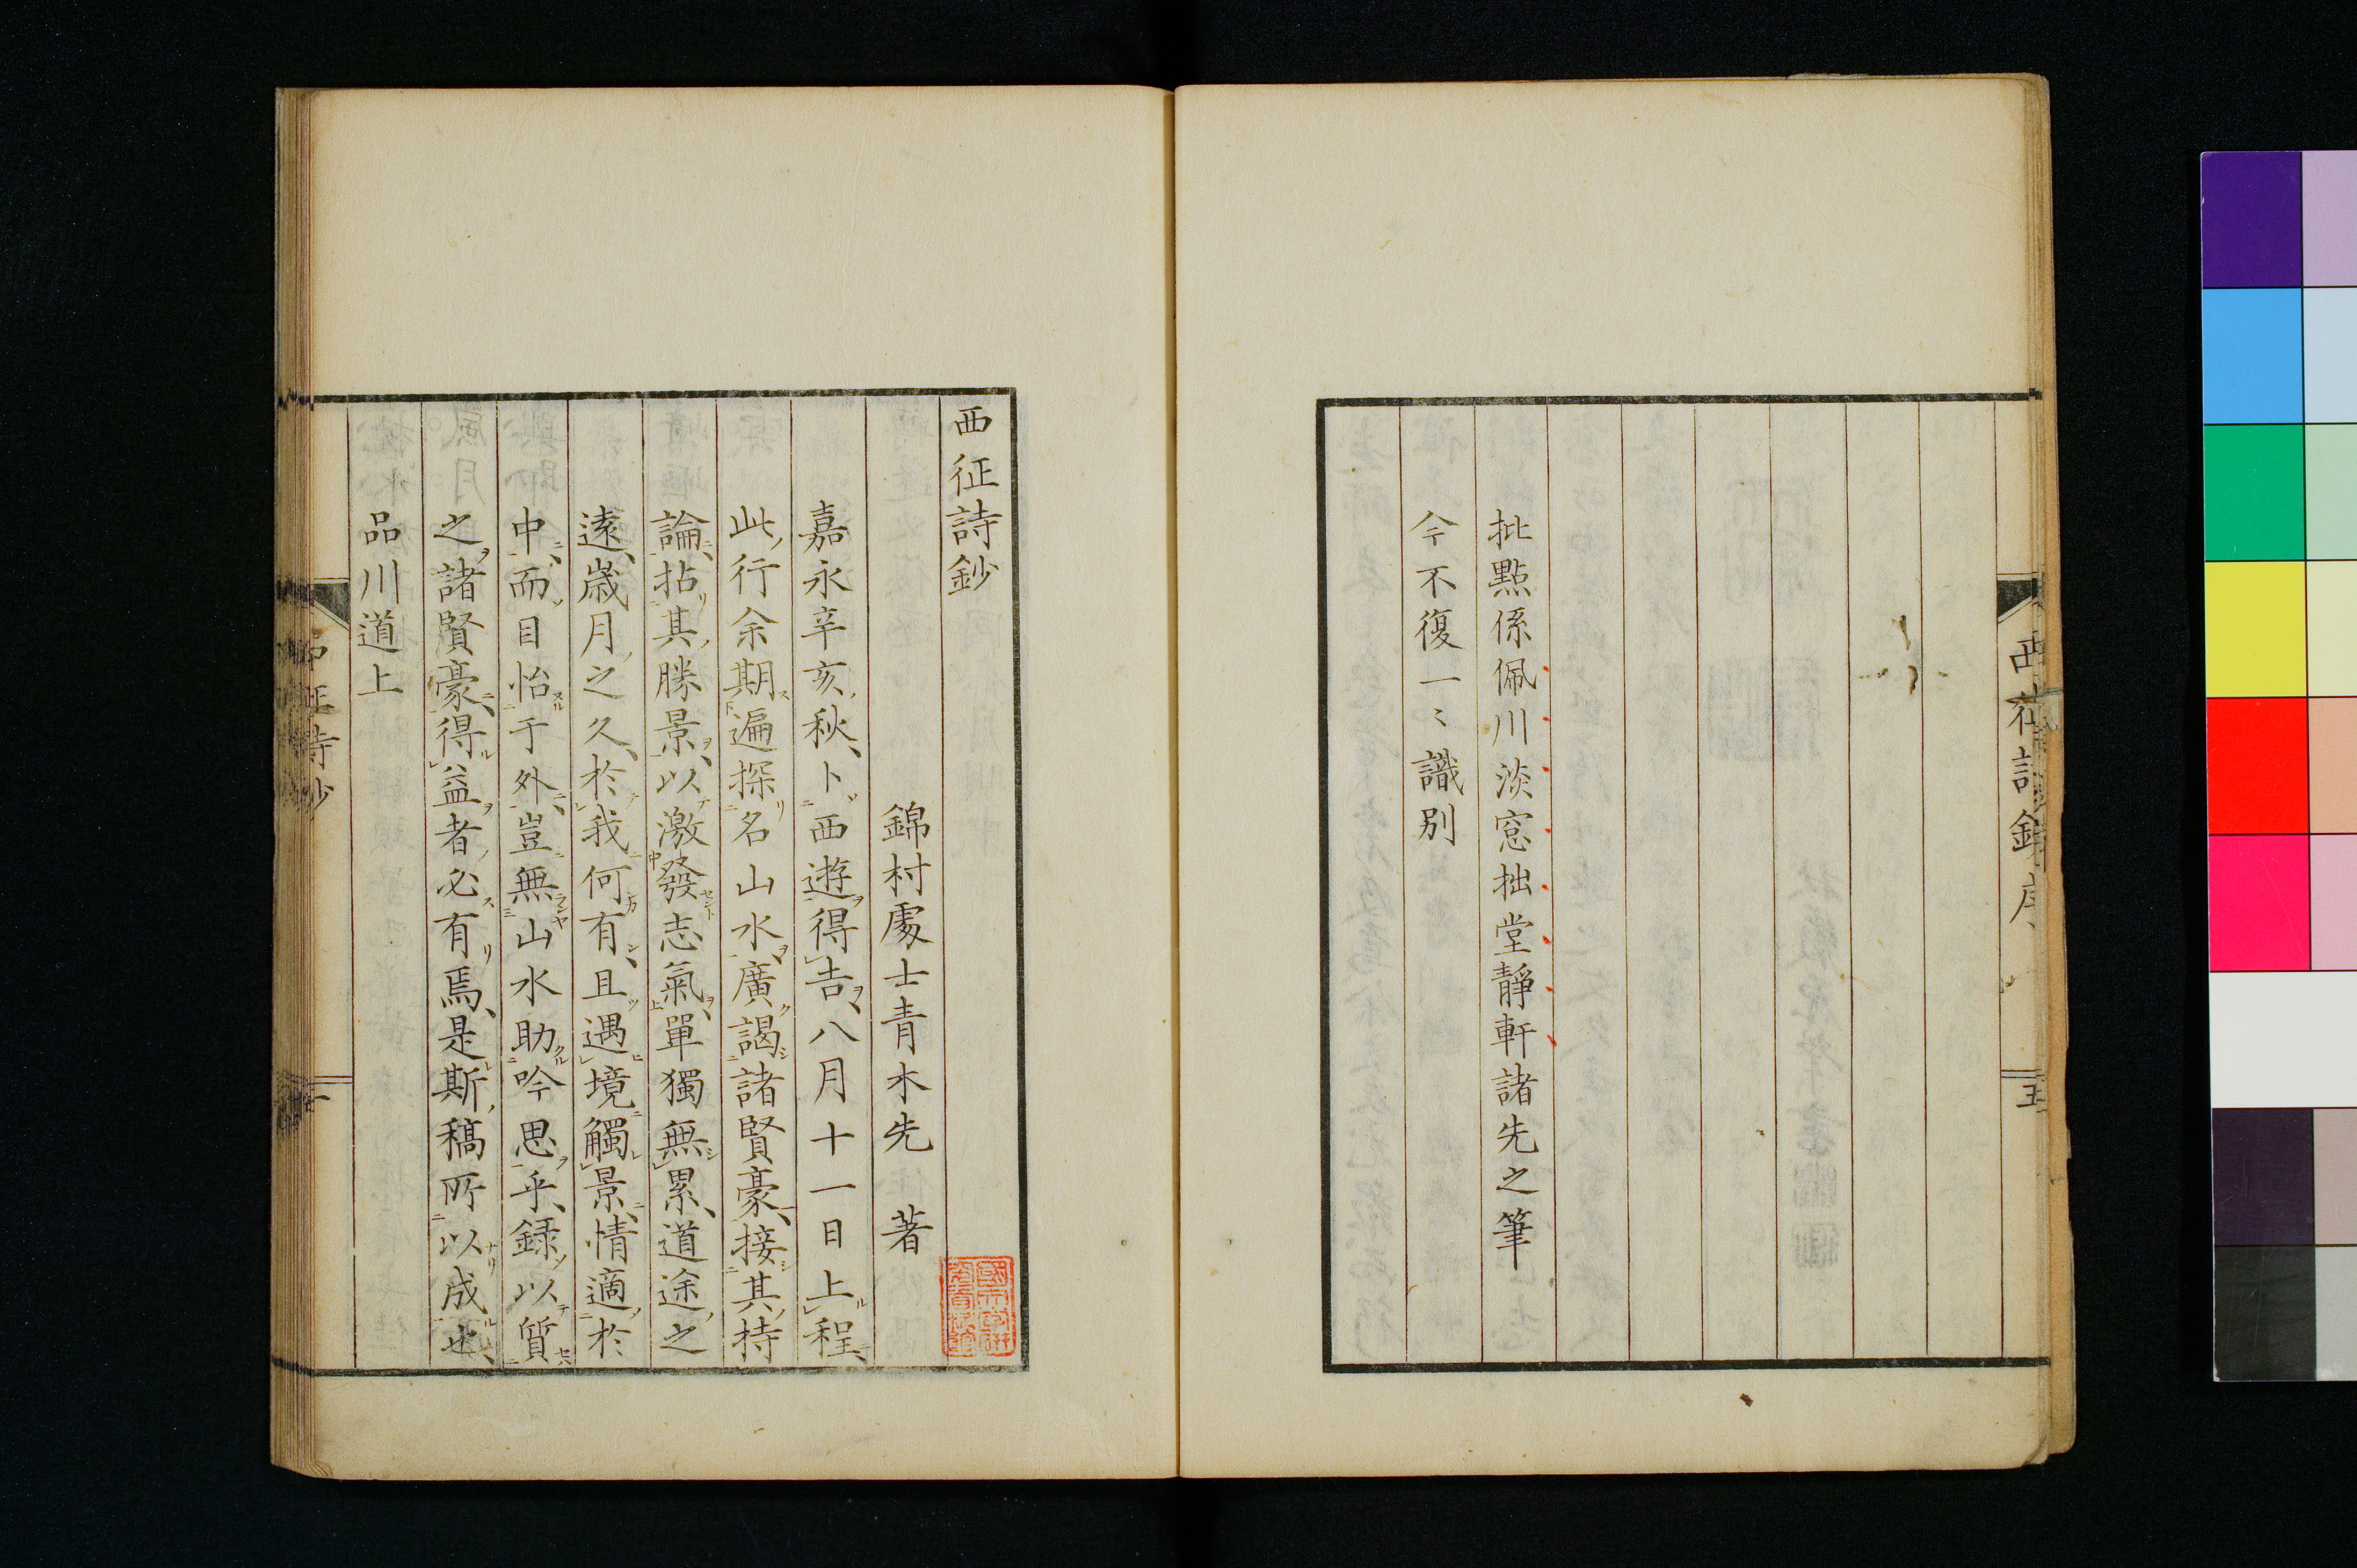 批點係佩川淡窓拙堂靜軒諸先之筆
今不復一〻識別
西征詩鈔序
五
西征詩鈔
錦村處士青木先著
嘉永辛亥秋卜西遊得吉八月十一日上程
此行余期遍探名山水廣謁諸賢豪接其持
論拈其勝景以激發志氣單獨無累道途之
遠歲月之久於我何有且遇境觸景情適於
中而目怡于外豈無山水助吟思乎録以質
之諸賢豪得益者必有焉是斯稿所以成也
品川道上
西征詩鈔